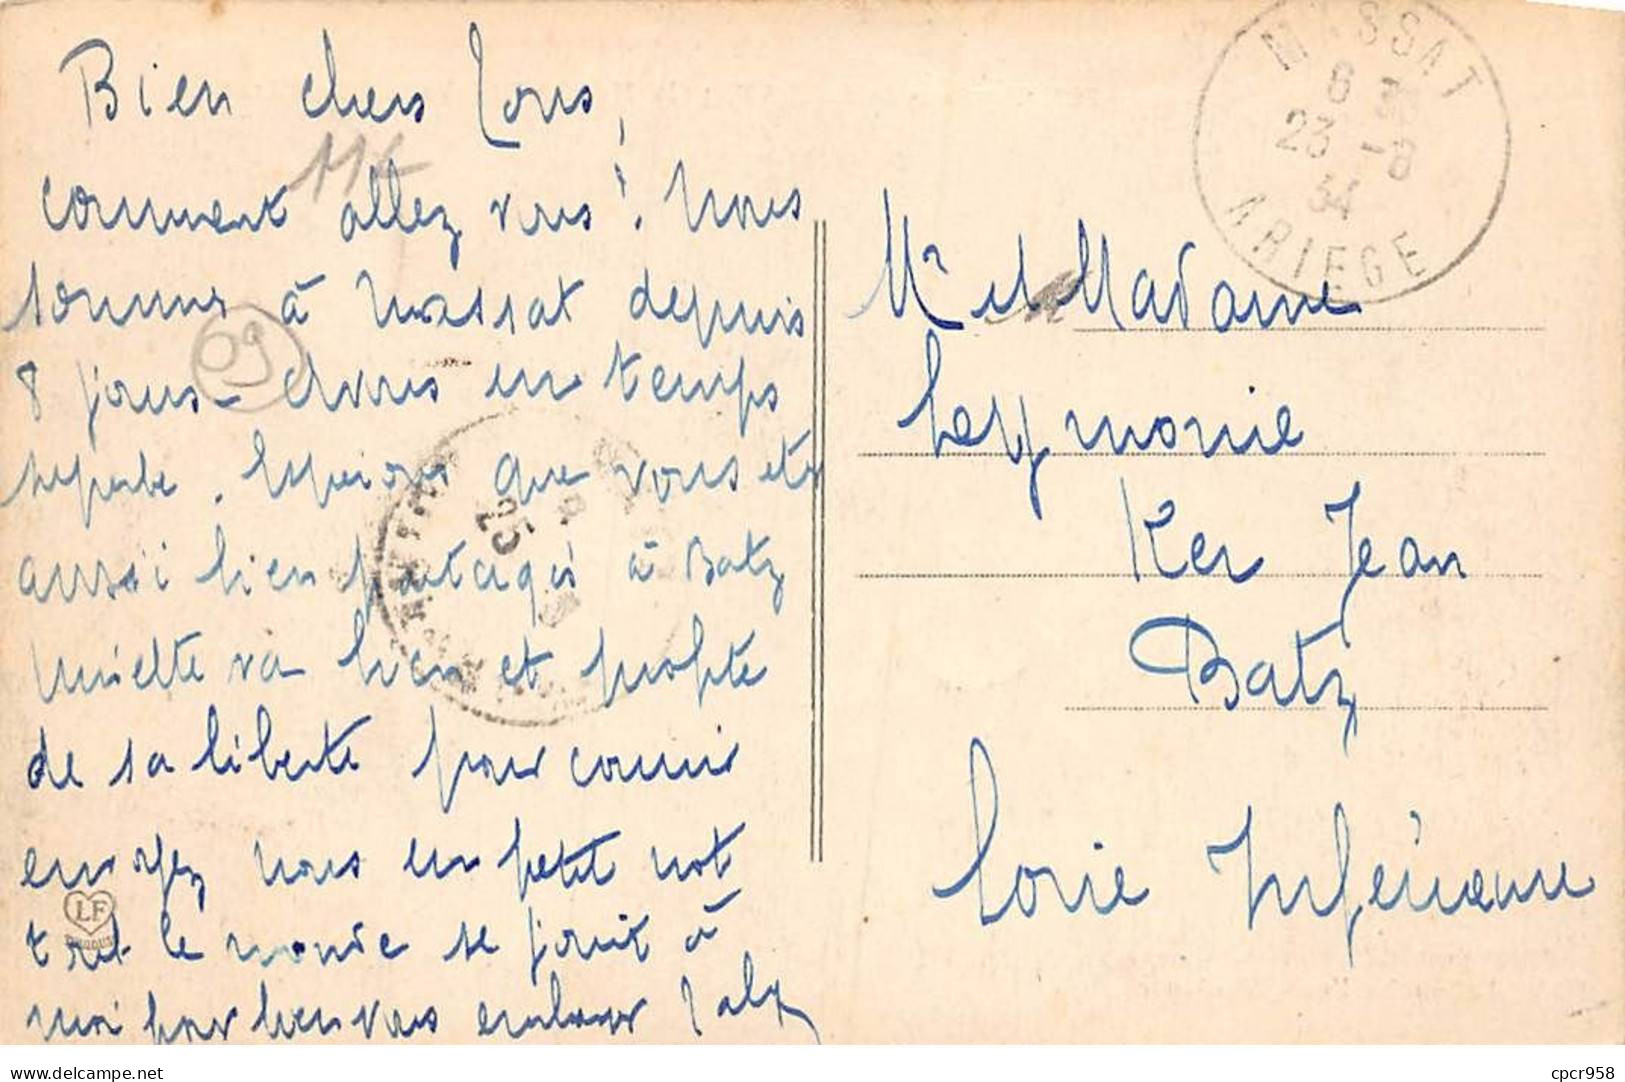 Bien chers Tous,
comment allez vous? Nous
sommes à Massat depuis
8 jours - Avons un temps
superbe. Espérons que vous etes
aussi bien partagés à Batz
va bien et profite
de sa liberte pour courir
envoyez nous un petit mot
tout le monde se joint à
moi pour bien vous embrasser
114
09
LF
MASSAT
6 30
23 -8
34
ARIEGE
25
8
Mr et Madame
Leymonie
Ker Jean
Batz
Loire Inférieure
delcampe.net
cpcr958